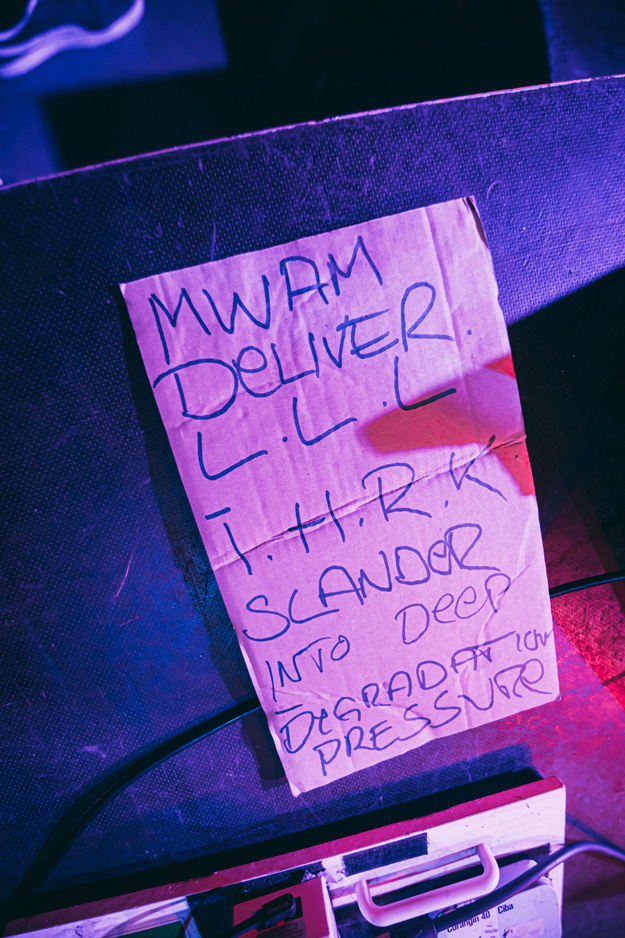 MWAM
DELIVER.
L.L.L
T.H.R.K
SLANDER
INTO DEEP
DEGRADATION
PRESSURE
Curangin 40 Ciba